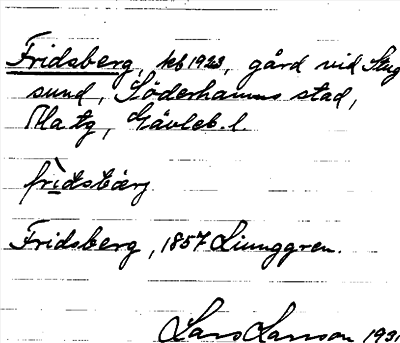 Fridsberg, kb 1923, gård vid Stug
sund, Söderhamns stad,
Hls tg, Gävleb. l.
frìdsbärj
Fridsberg, 1857 Ljunggren.
Lars Larsson 1931